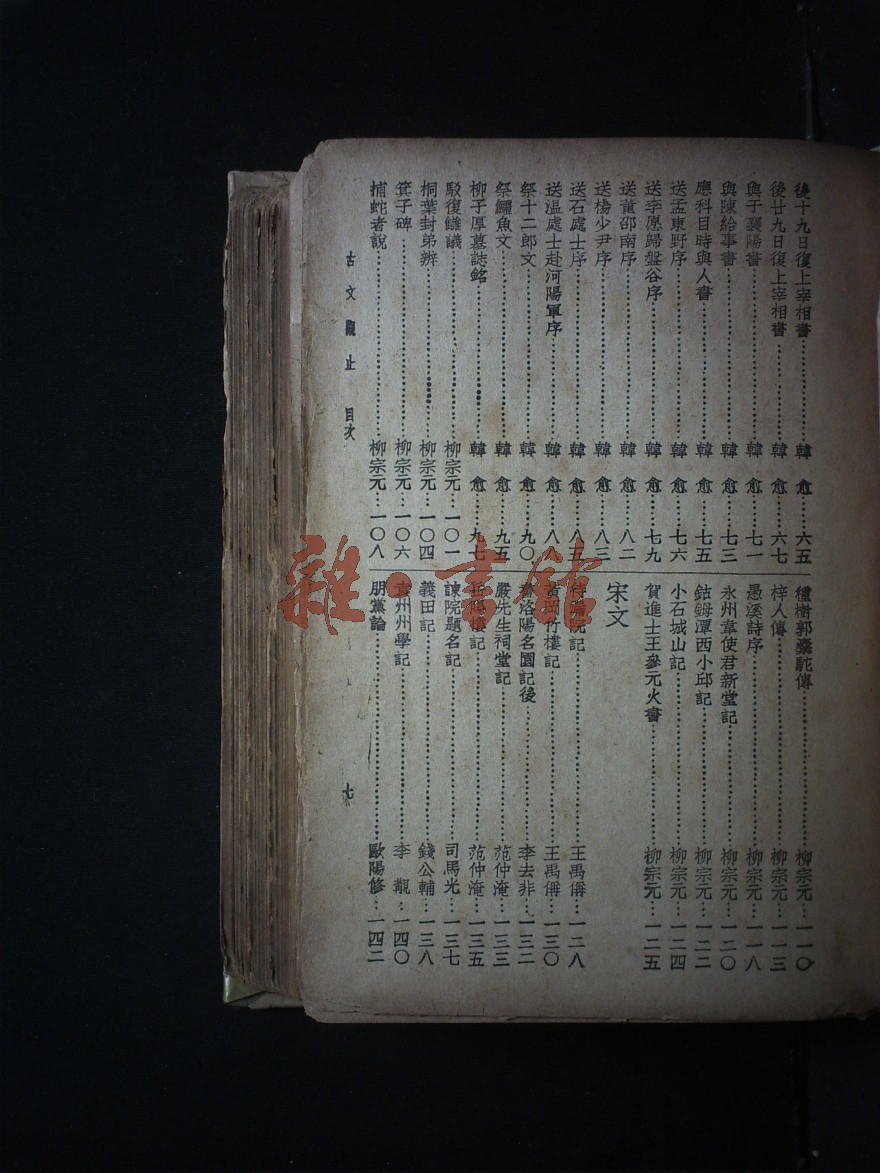 後十九日復上宰相書⋯⋯韓愈⋯六五
後廿九日復上宰相書⋯⋯韓愈⋯六七
與于襄陽書⋯⋯韓愈⋯七一
與陳給事書⋯⋯韓愈⋯七三
應科目時與人書⋯⋯韓愈⋯七五
送孟東野序⋯⋯韓愈⋯七六
送李愿歸盤谷序⋯⋯韓愈⋯七九
送董邵南序⋯⋯韓愈⋯八二
送楊少尹序⋯⋯韓愈⋯八三
送石處士序⋯⋯韓愈⋯八五
送温處士赴河陽軍序⋯⋯韓愈⋯八八
祭十二郎文⋯⋯韓愈⋯九〇
祭鱷魚文⋯⋯韓愈⋯九五
柳子厚墓誌銘⋯⋯韓愈⋯九七
駁復讎議⋯⋯柳宗元⋯一〇一
桐葉封弟辨⋯⋯柳宗元⋯一〇四
箕子碑⋯⋯柳宗元⋯一〇六
捕蛇者說⋯⋯柳宗元⋯一〇八
種樹郭橐駝傳⋯⋯柳宗元⋯一一〇
梓人傳⋯⋯柳宗元⋯一一三
愚溪詩序⋯⋯柳宗元⋯一一八
永州韋使君新堂記⋯⋯柳宗元⋯一二〇
鈷鉧潭西小邱記⋯⋯柳宗元⋯一二二
小石城山記⋯⋯柳宗元⋯一二四
賀進士王參元火書⋯⋯柳宗元⋯一二五
宋文
待漏院記⋯⋯王禹偁⋯一二八
黃岡竹樓記⋯⋯王禹偁⋯一三〇
書洛陽名園記後⋯⋯李去非⋯一三二
嚴先生祠堂記⋯⋯范仲淹⋯一三三
岳陽樓記⋯⋯范仲淹⋯一三五
諫院題名記⋯⋯司馬光⋯一三七
義田記⋯⋯錢公輔⋯一三八
袁州州學記⋯⋯李覯⋯一四〇
朋黨論⋯⋯歐陽修⋯一四二
古文觀止 目次
七
雜·書館